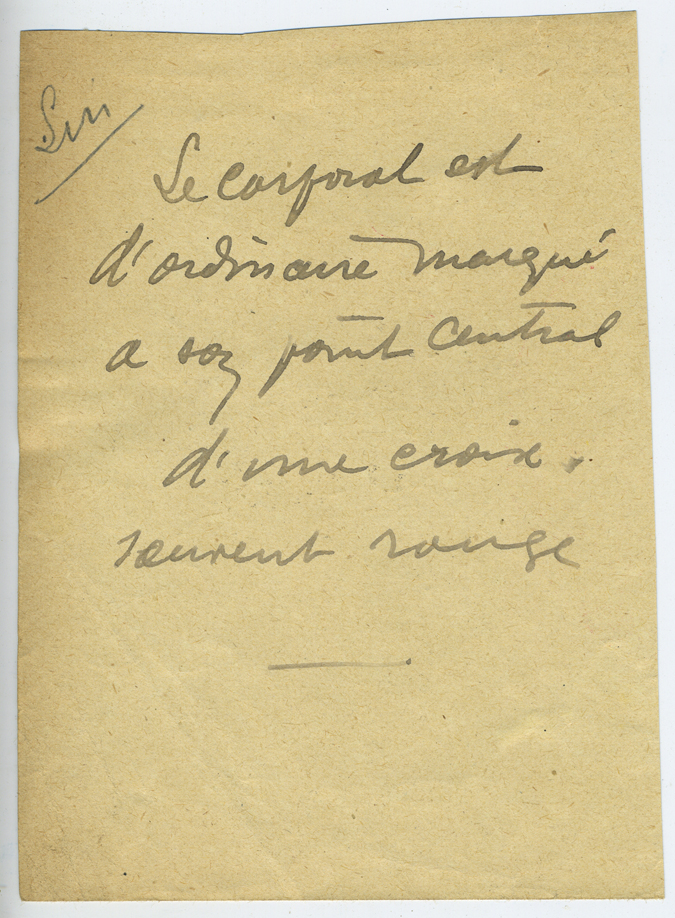 Lin
Le corporal est
d'ordinaire marqué
a son point central
d'une croix.
souvent rouge